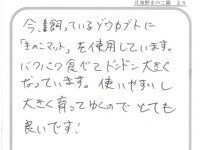 月夜野きのこ園 より
今、飼っているゾウカブトに
「きのこマット」を使用しています。
バクバク食べてドンドン大きく
なっています。使いやすいし
大きく育ってゆくので とても
良いです!